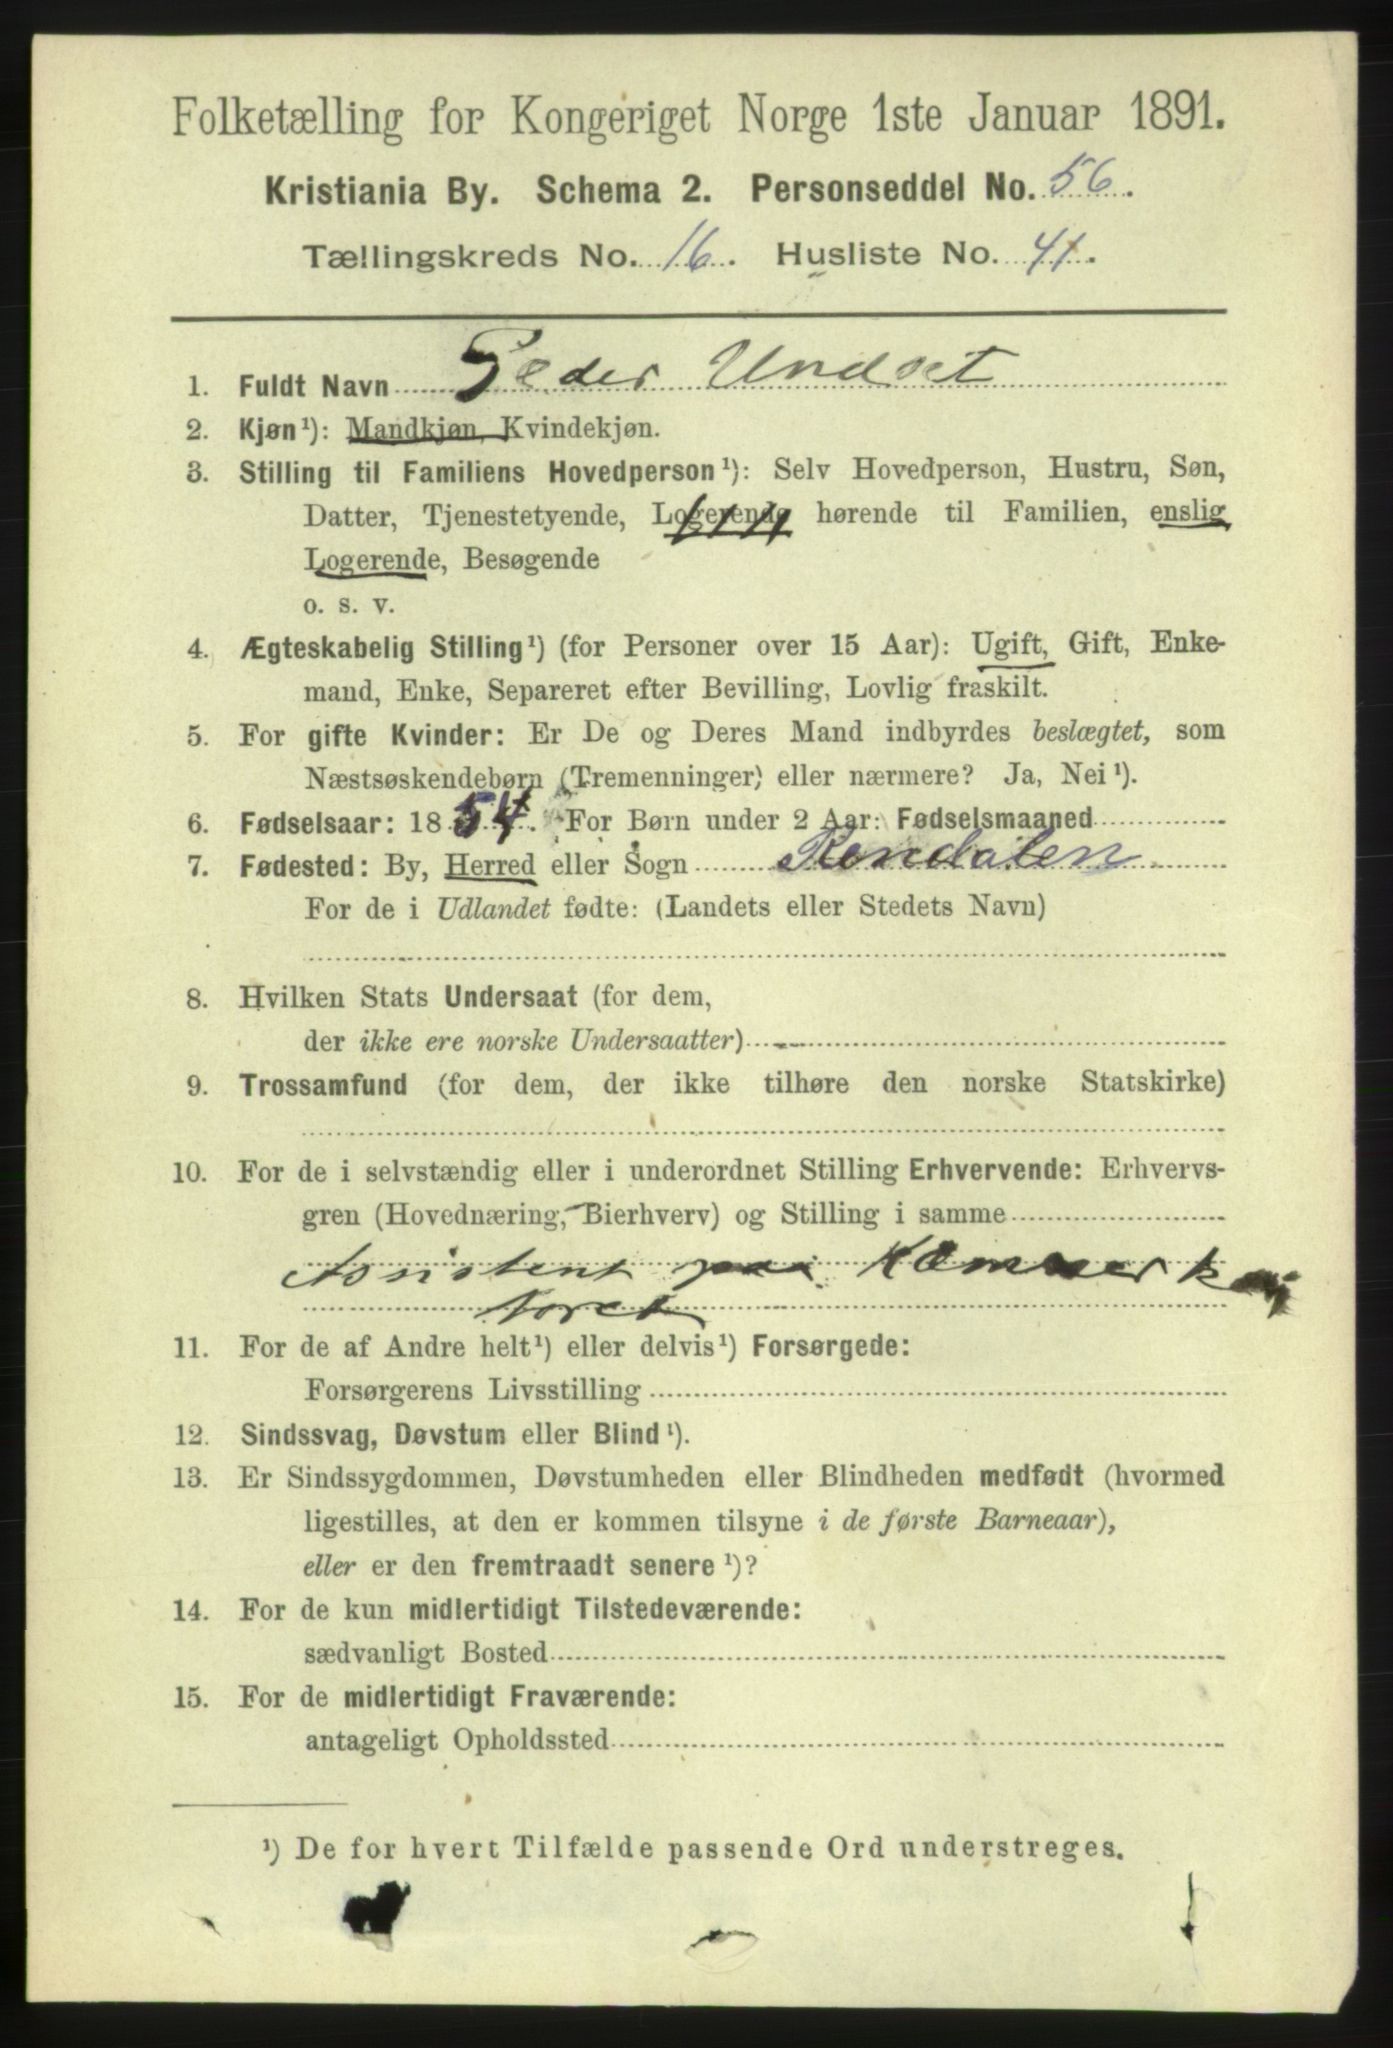 Folketælling for Kongeriget Norge 1ste Januar 1891.
Kristiania By. Schema 2. Personseddel No. 56.
Tællingskreds No. 16. Husliste No. 41.
1. Fuldt Navn Peder Undset
2. Kjøn¹): Mandkjøn, Kvindekjøn.
3. Stilling til Familiens Hovedperson¹): Selv Hovedperson, Hustru, Søn,
Datter, Tjenestetyende, Logerende hørende til Familien, enslig
Logerende, Besøgende
o. s. v.
4. Ægteskabelig Stilling¹) (for Personer over 15 Aar): Ugift, Gift, Enke-
mand, Enke, Separeret efter Bevilling, Lovlig fraskilt.
5. For gifte Kvinder: Er De og Deres Mand indbyrdes beslægtet, som
Næstsøskendebørn (Tremenninger) eller nærmere? Ja, Nei¹).
6. Fødselsaar: 1854. For Børn under 2 Aar: Fødselsmaaned
7. Fødested: By, Herred eller Sogn Rendalen
For de i Udlandet fødte: (Landets eller Stedets Navn)
8. Hvilken Stats Undersaat (for dem,
der ikke ere norske Undersaatter)
9. Trossamfund (for dem, der ikke tilhøre den norske Statskirke)
10. For de i selvstændig eller i underordnet Stilling Erhvervende: Erhvervs-
gren (Hovednæring, Bierhverv) og Stilling i samme
Assistent paa Kæmnerkon
toret
11. For de af Andre helt¹) eller delvis¹) Forsørgede:
Forsørgerens Livsstilling
12. Sindssvag, Døvstum eller Blind¹).
13. Er Sindssygdommen, Døvstumheden eller Blindheden medfødt (hvormed
ligestilles, at den er kommen tilsyne i de første Barneaar),
eller er den fremtraadt senere¹)?
14. For de kun midlertidigt Tilstedeværende:
sædvanligt Bosted
15. For de midlertidigt Fraværende:
antageligt Opholdssted
¹) De for hvert Tilfælde passende Ord understreges.